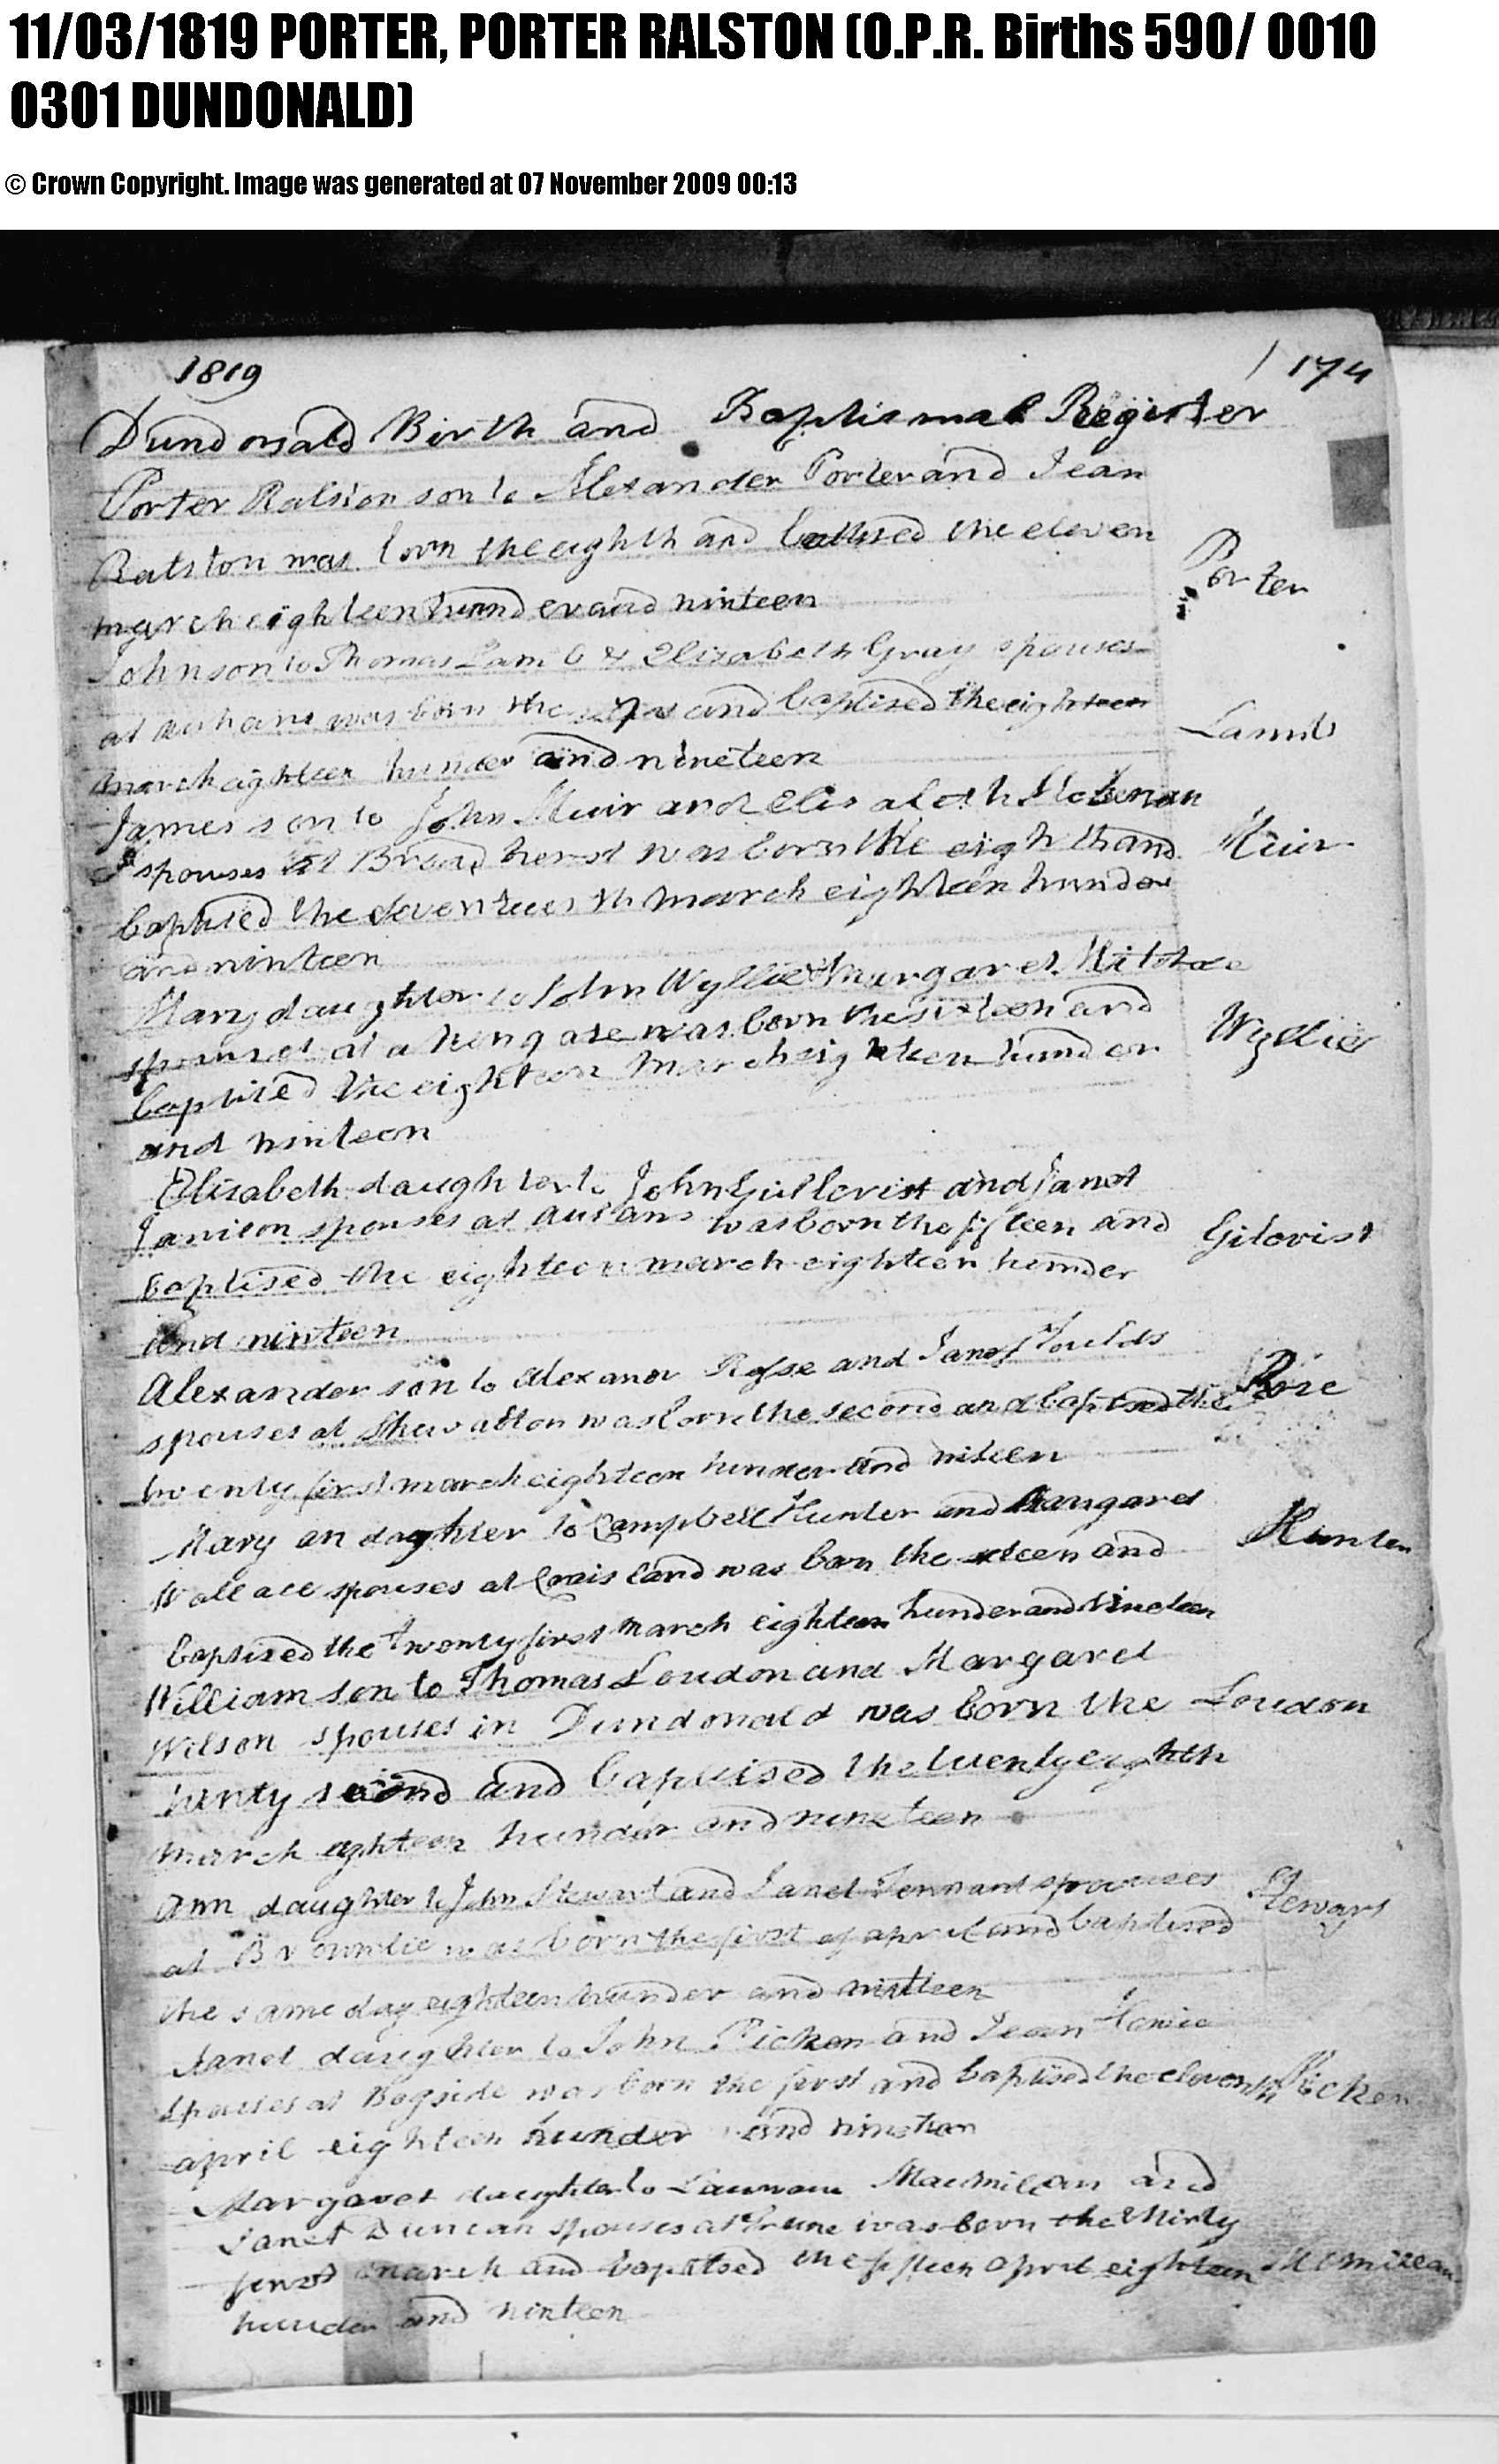 11/03/1819 PORTER, PORTER RALSTON (O.P.R. Births 590/ 0010
0301 DUNDONALD)
© Crown Copyright. Image was generated at 07 November 2009 00:13
1819
174
Dundonald Birth and Baptismal Register
Porter Ralston son to Alexander Porter and Jean
Ralston was born the eighth and the eleven
march eighteen hunder and ninteen
Porter
John son to Thomas Lamb & Elizabeth Gray spouses
at was born the and baptized the eighteen
march eighteen hunder and nineteen
Lamb
James son to John Muir and Elisabeth
spouses at was born the eighth and
baptised the march eighteen hunder
and ninteen
Muir
Mary daughter to John Wyllie & Margaret
spouses at was born the sixteen and
baptised the eighteen march eighteen hunder
and ninteen
Wyllie
Elizabeth daughter to John and Janet
spouses at was born the fifteen and
baptised the eighteen march eighteen hunder
and ninteen
Gilcrist
Alexander son to Rosse and Janet Foulds
spouses at Shewalton was born the second and baptised the
twenty first march eighteen hunder and
Rose
Mary an daughter to Campbell Hunter and Margaret
Wallace spouses at was born the and
baptized the twenty first march eighteen hunder and nineteen
Hunter
William son to Thomas Loudon and Margaret
Wilson spouses in Dundonald was born the
second and baptised the twenty eighth
march eighteen hunder and nineteen
Loudon
Ann daughter to John Stewart and Janet Tennant spouses
at was born the first of april and baptised
the same day eighteen hunder and ninteen
Stewart
Janet daughter to John Picken and Jean Howie
spouses at Bogside was born the first and baptised the eleventh
april eighteen hunder and nineteen
Picken
Margaret daughter to Macmillan and
Janet Duncan spouses at was born the thirty
first march and baptised the fifteen april eighteen
hunder and ninteen